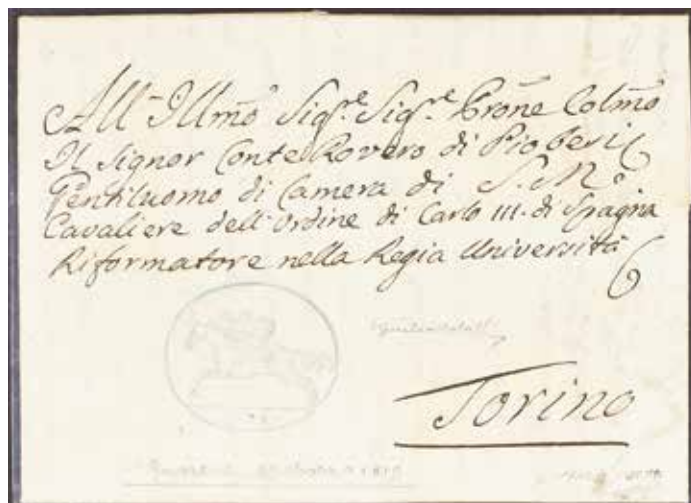 All'Illmo Sigr.e Sigr.e Prone Colmo
Il Signor Conte Rovero di Pioberi
Gentiluomo di Camera di S. M.
Cavaliere dell'Ordine di Carlo III. di Spagna
Riformatore nella Regia Università
Torino